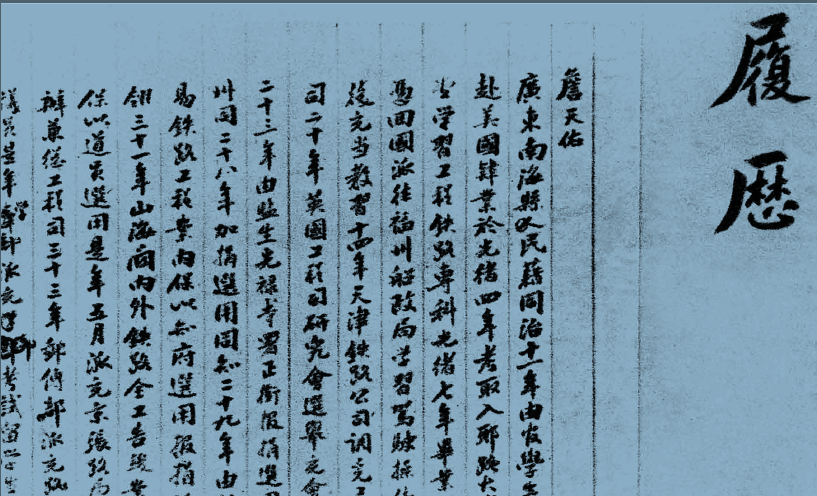 履歷
詹天佑
廣東南海縣人民籍同治十一年由官學生
赴美國肄業於光緒四年考取入耶路大
學習工程鉄路專科光緒七年畢業
憑回國派往福州船政局學習駕駛操
後充當教習十四年天津鉄路公司調充工
司二十年英國工程司研究會選舉充會
二十三年由監生光祿寺署正銜報捐選用
州同二十八年加捐選用同知二十九年由
易鉄路工程案內保以知府選用報捐
翎三十一年山海關內外鉄路全工告竣業
保以道員選用是年五月派充京張路局
辦兼總工程司三十三年郵傳部派充
議員是年學部派充考試留學生